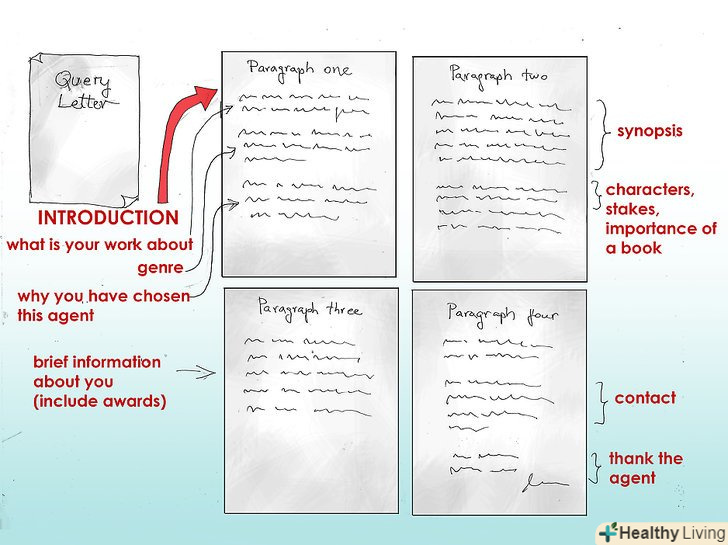 Query
Letter
INTRODUCTION
what is your work about
genre
why you have chosen
this agent
Paragraph one
Paragraph two
synopsis
characters,
stakes,
importance of
a book
Paragraph three
brief information
about you
(include awards)
Paragraph four
contact
thank the
agent
Healthy Living